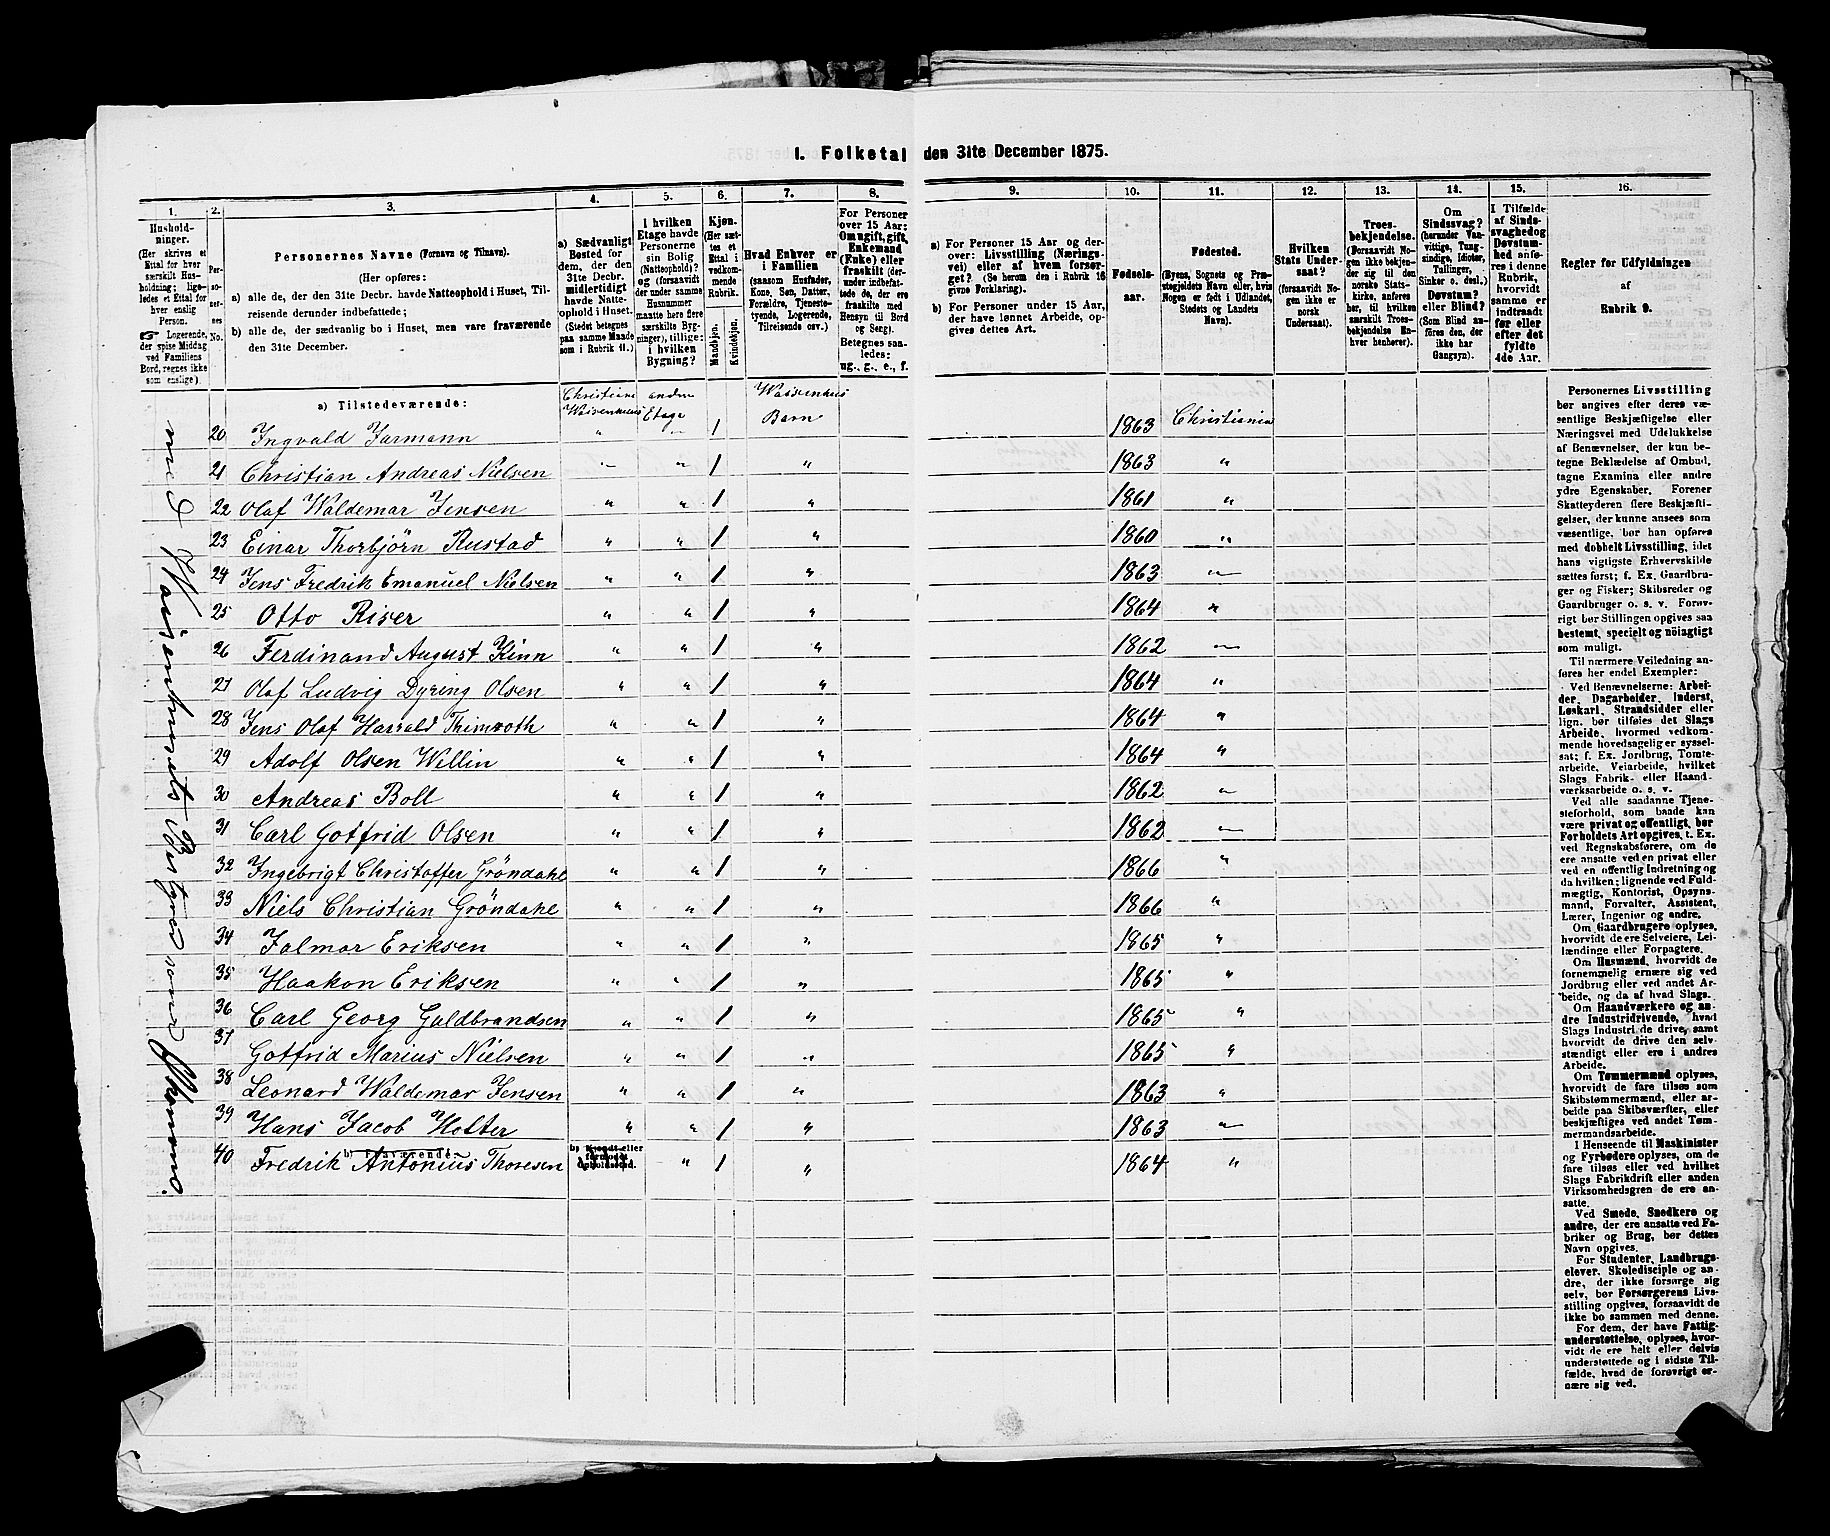 I. Folketal den 31te December 1875.
1. 2. 3. 4. 5. 6. 7. 8. 9. 10. 11. 12. 13. 14. 15. 16.
Husholdninger.
(Her skrives et
Ettal for hver
særskilt Husholdning;
ligeledes
et Ettal for
hver enslig
Person.
Logerende,
der spise Middag
ved Familiens
Bord, regnes ikke
som enslige).
Personernes No.
Personernes Navne (Fornavn og Tilnavn).
(Her opføres:
a) alle de, der den 31te Decbr. havde Natteophold i Huset, Tilreisende
derunder indbefattede;
b) alle de, der sædvanlig bo i Huset, men vare fraværende
den 31te December.
a) Sædvanligt
Bosted for
dem, der den
31te Decbr.
midlertidigt
havde Natteophold
i Huset.
(Stedet betegnes
paa samme Maade
som i Rubrik 11.)
I hvilken
Etage havde
Personerne
sin Bolig
(Natteophold)?
og (forsaavidt
der under samme
Husnummer
maatte høre flere
særskilte Bygninger),
tillige:
i hvilken
Bygning?
Kjøn.
(Her sættes
et
Ettal i
vedkommende
Rubrik.
Mandkjøn.
Kvindekjøn.
Hvad Enhver er
i Familien
(saasom Husfader,
Kone, Søn, Datter,
Forældre, Tjenestetyende,
Logerende,
Tilreisende osv.)
For Personer
over 15 Aar:
Om ugift, gift,
Enkemand
(Enke) eller
fraskilt (derunder
indbefattede
de, der
ere fraskilte med
Hensyn til Bord
og Seng).
Betegnes saaledes:
ug., g., e., f.
a) For Personer 15 Aar og derover:
Livsstilling (Næringsvei)
eller af hvem forsørget?
(Se herom den i Rubrik 16
givne Forklaring).
b) For Personer under 15 Aar,
der have lønnet Arbeide, opgives
dettes Art.
Fødselsaar.
Fødested.
(Byens, Sognets og Præstegjeldets
Navn eller, hvis
Nogen er født i Udlandet,
Stedets og Landets
Navn).
Hvilken
Stats Undersaat?
(forsaavidt
Nogen ikke er
norsk
Undersaat).
Troesbekjendelse.
(Forsaavidt Nogen
ikke bekjender
sig til den
norske Statskirke,
anføres
her, til hvilken
særskilt Troesbekjendelse
Enhver
henhører).
Om
Sindssvag?
(herunder Vanvittige,
Tungsindige,
Idioter,
Tullinger,
Sinker o. desl.)
Døvstum?
eller Blind?
(Som Blind anføres
den, der
ikke har
Gangsyn).
I Tilfælde
af Sindssvaghed
og
Døvstumhed
anføres
i denne
Rubrik,
hvorvidt
samme er
indtraadt
før eller
efter det
fyldte
4de Aar.
Regler for Udfyldningen
af
Rubrik 9.
a) Tilstedeværende: Christiania Waisenhuus anden Etage Waisenhus Barn
20 Ingvald Jarmann " " 1 1863 Christiania
21 Christian Andreas Nielsen " " 1 " 1863 "
22 Olaf Waldemar Jensen " " 1 " 1861 "
23 Einar Thorbjörn Rustad " " 1 " 1860 "
24 Jens Fredrik Emanuel Nielsen " " 1 " 1863 "
25 Otto Riser " " 1 " 1864 "
26 Ferdinand August Kinn " " 1 " 1862 "
27 Olaf Ludvig Dyring Olsen " " 1 " 1864 "
28 Jens Olaf Harrald Thimroth " " 1 " 1864 "
29 Adolf Olsen Willin " " 1 " 1864 "
30 Andreas Boll " " 1 " 1862 "
31 Carl Gotfrid Olsen " " 1 " 1862 "
32 Ingebrigt Christoffer Gröndahl " " 1 " 1866 "
33 Niels Christian Gröndahl " " 1 " 1866 "
34 Jalmar Eriksen " " 1 " 1865 "
35 Haakon Eriksen " " 1 " 1865 "
36 Carl Georg Guldbrandsen " " 1 " 1865 "
37 Gotfrid Marius Nielsen " " 1 " 1865 "
38 Leonard Waldemar Jensen " " 1 " 1863 "
39 Hans Jacob Holter " " 1 " 1863 "
b) Fraværende: b) Kjendt eller formodet Opholdssted.
40 Fredrik Antonius Thoresen " 1 " 1864 "
med Waisenhusets
Personernes Livsstilling
bør angives efter deres væsentlige
Beskjæftigelse eller
Næringsvei med Udelukkelse
af Benævnelser, der kun betegne
Beklædelse af Ombud,
tagne Examina eller andre
ydre Egenskaber. Forener
Skatteyderen flere Beskjæftigelser,
der kunne ansees som
væsentlige, bør han opføres
med dobbelt Livsstilling, idet
hans vigtigste Erhvervskilde
sættes først; f. Ex. Gaardbruger
og Fisker; Skibsreder og
Gaardbruger o. s. v. Forøvrigt
bør Stillingen opgives saa
bestemt, specielt og nöiagtigt
som muligt.
Til nærmere Veiledning anføres
her endel Exempler:
Ved Benævnelserne: Arbeider,
Dagarbeider, Inderst,
Løskarl, Strandsidder eller
lign. bør tilføies det Slags
Arbeide, hvormed vedkommende
hovedsagelig er sysselsat;
f. Ex. Jordbrug, Tomtearbeide,
Veiarbeide, hvilket
Slags Fabrik- eller Haandværksarbeide
o. s. v.
Ved alle saadanne Tjenesteforhold,
som baade kan
være privat og offentligt, bør
Forholdets Art opgives, t. Ex.
ved Regnskabsførere, om de
ere ansatte ved en privat eller
ved en offentlig Indretning og
da hvilken; lignende ved Fuldmægtig,
Kontorist, Opsynsmand,
Forvalter, Assistent,
Lærer, Ingeniør og andre.
Om Gaardbrugere oplyses,
hvorvidt de ere Selveiere, Leilændinge
eller Forpagtere.
Om Husmænd, hvorvidt de
fornemmelig ernære sig ved
Jordbrug eller ved andet Arbeide,
og da af hvad Slags.
Om Haandværkere og andre
Industridrivende, hvad
Slags Industri de drive, samt
hvorvidt de drive den selvstændigt
eller ere i andres
Arbeide.
Om Tømmermænd oplyses,
hvorvidt de fare tilsøs som
Skibstømmermænd, eller arbeide
paa Skibsværfter, eller
beskjæftiges ved andet Tømmermandsarbeide.
I Henseende til Maskinister
og Fyrbødere oplyses, om de
fare tilsøs eller ved hvilket
Slags Fabrikdrift eller anden
Virksomhedsgren de ere ansatte.
Ved Smede, Snedkere og
andre, der ere ansatte ved Fabriker
og Brug, bør dettes
Navn opgives.
For Studenter, Landbrugselever,
Skoledisciple og andre,
der ikke forsørge sig
selv, bør Forsørgerens Livsstilling
opgives, forsaavidt de
ikke bo sammen med denne.
For dem, der have Fattigunderstøttelse,
oplyses, hvorvidt
de ere helt eller delvis
understøttede og i sidste Tilfælde,
hvad de forøvrigt ernære
sig ved.